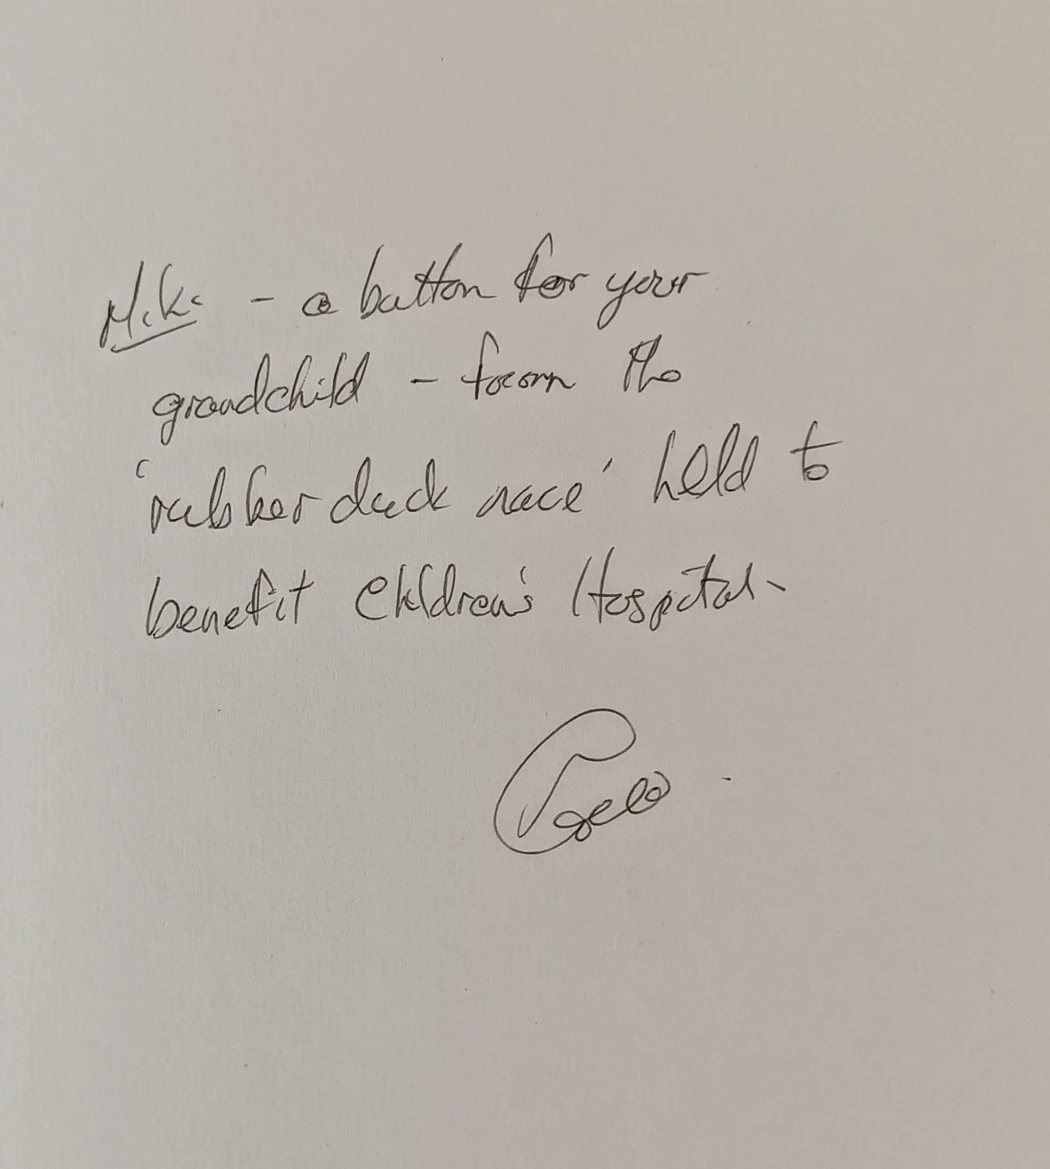 Mike - a button for your
grandchild - from the
'rubber duck race' held to
benefit Children's Hospital.